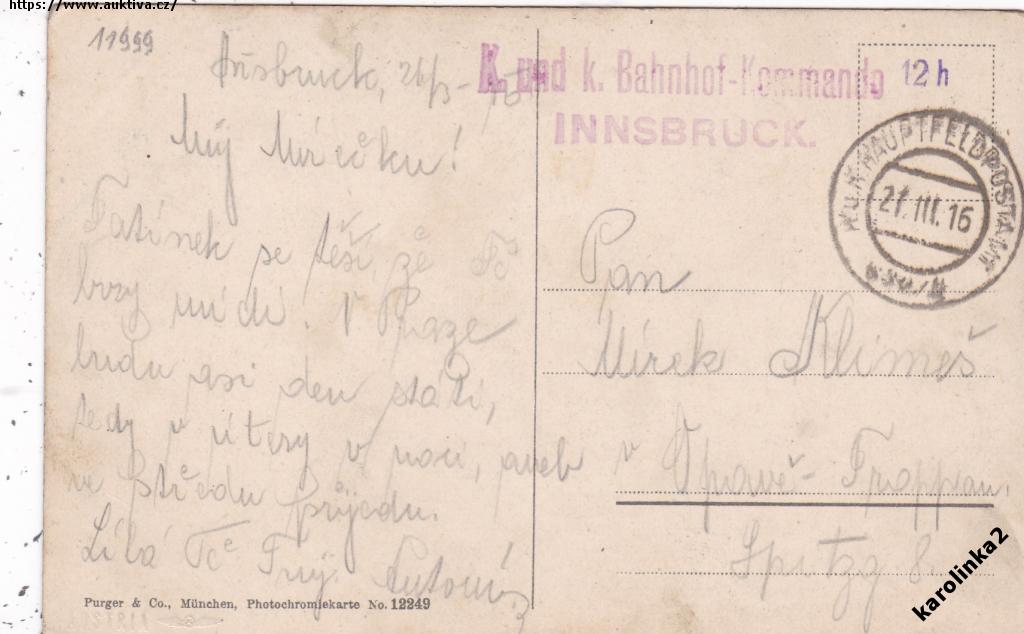 https://www.auktiva.cz/
11999
K. und k. Bahnhof-Kommando
INNSBRUCK.
12 h
K.u.K. HAUPTFELDPOSTAMT
21.III.16
Můj Mírečku!
Tatínek se těší, že Tě
brzy uvidí. V Praze
budu asi den státi,
tedy v úterý v noci, aneb
ve středu přijedu.
Líbá Tě Tvůj
Pan
Mírek Klimeš
v Opavě - Troppau.
Purger & Co., München, Photochromiekarte No. 12249
karolinka2